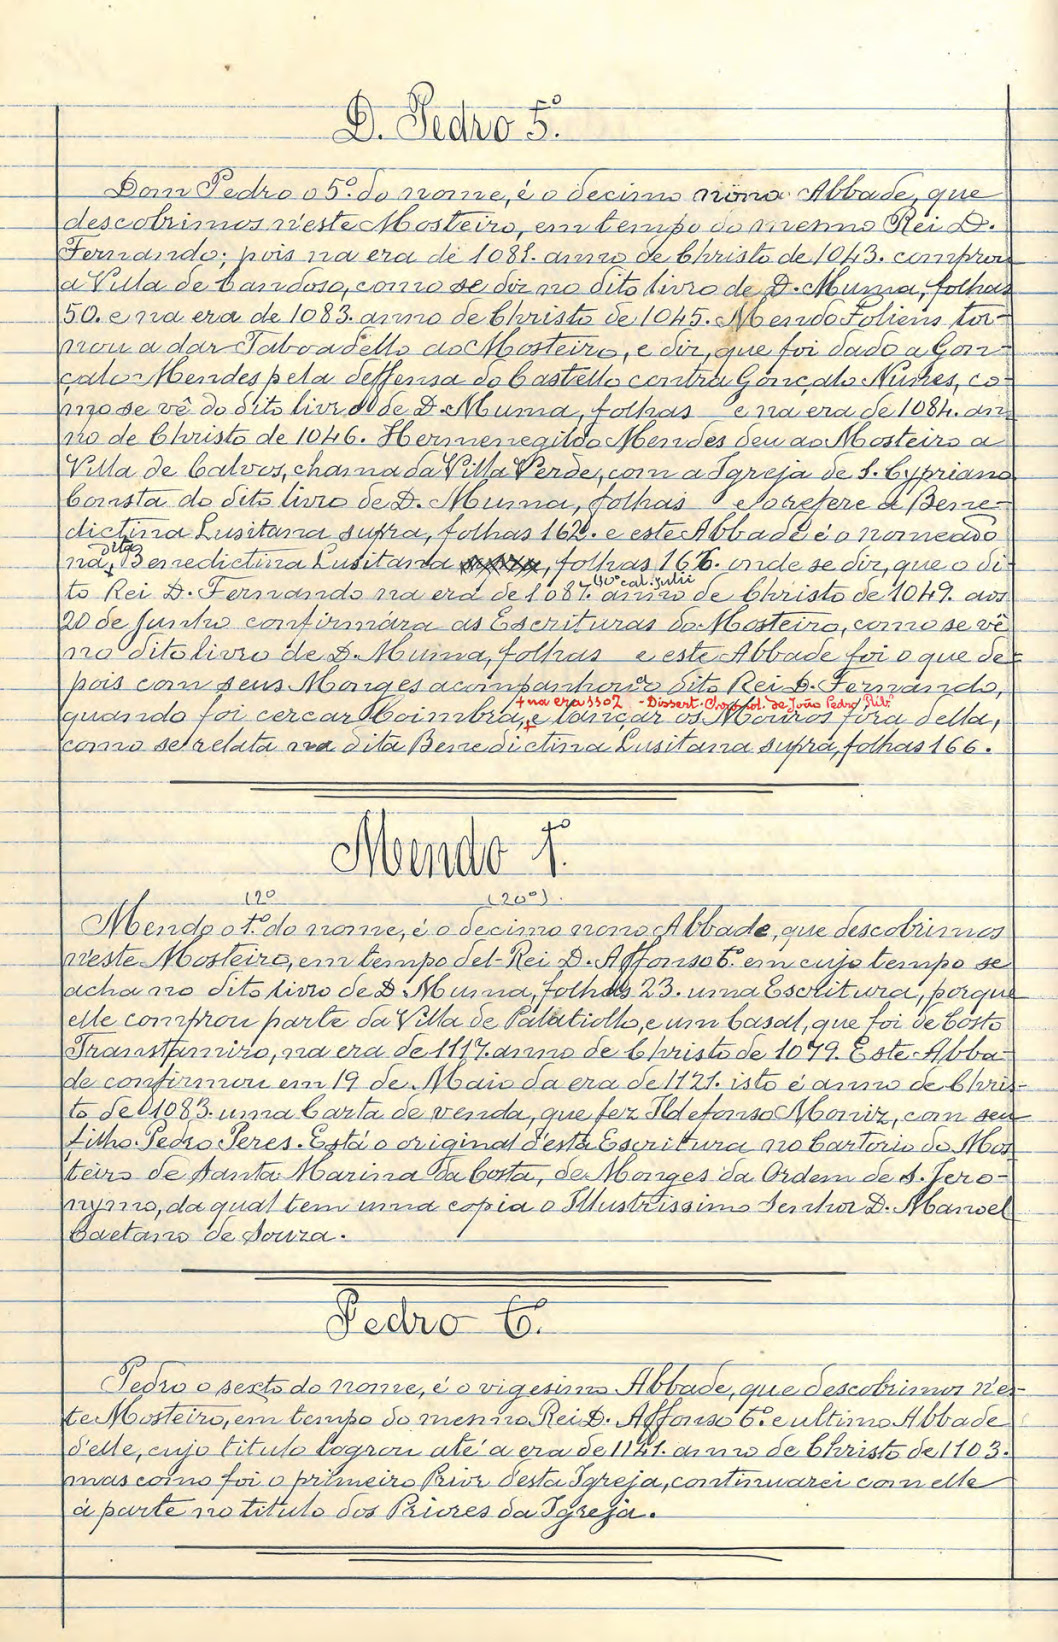 D. Pedro 5º.
Dom Pedro o 5º. do nome, é o decimo nono Abbade, que
descobrimos n'este Mosteiro, em tempo do mesmo Rei D.
Fernando; pois na era de 1081. anno de Christo de 1043. comprou
a Villa de Candoso, como se diz no dito livro de D. Muma, folhas
50. e na era de 1083. anno de Christo de 1045. Mendo Foliens tor-
nou a dar Taboadello ao Mosteiro, e diz, que foi dado a Gon-
çalo Mendes pela deffensa do Castello contra Gonçalo Nunes, co-
mo se vê do dito livro de D. Muma, folhas e na era de 1084. an-
no de Christo de 1046. Hermenegildo Mendes deu ao Mosteiro a
Villa de Calvos, chamada Villa Verde, com a Igreja de S. Cypriano
Consta do dito livro de D. Muma, folhas e o refere a Bene-
dictina Lusitana supra, folhas 162. e este Abbade é o nomeado
dita
na, Benedictina Lusitana, folhas 166. onde se diz, que o di-
40º cal. julii
to Rei D. Fernando na era de 1087. anno de Christo de 1049. aos
20 de Junho confirmára as Escrituras do Mosteiro, como se vê
no dito livro de D. Muma, folhas e este Abbade foi o que de-
pois com seus Monges acompanhou o dito Rei D. Fernando,
+ na era 1102 - Dissert. Chronol. de João Pedro Ribº
quando foi cercar Coimbra, + e lançar os Mouros fóra della,
como se relata na dita Benedictina Lusitana supra, folhas 166.
Mendo 1º.
(2º (20º).
Mendo o 1º. do nome, é o decimo nono Abbade, que descobrimos
n'este Mosteiro, em tempo del-Rei D. Affonso 6º. em cujo tempo se
acha no dito livro de D. Muma, folhas 23. uma Escritura, porque
elle comprou parte da Villa de Palatiollo, e um Casal, que foi de Costo
Transtamiro, na era de 1117. anno de Christo de 1079. Este Abba-
de confirmou em 19 de Maio da era de 1121. isto é anno de Chris-
to de 1083. uma Carta de venda, que fez Ildefonso Moniz, com seu
filho Pedro Peres. Está o original d'esta Escritura no Cartorio do Mos-
teiro de Santa Marina da Costa, de Monges da Ordem de S. Jero-
nymo, da qual tem uma copia o Illustrissimo Senhor D. Manoel
Caetano de Souza.
Pedro 6º.
Pedro o sexto do nome, é o vigesimo Abbade, que descobrimos n'es-
te Mosteiro, em tempo do mesmo Rei D. Affonso 6º. e ultimo Abbade
d'elle, cujo titulo logrou até a era de 1141. anno de Christo de 1103.
mas como foi o primeiro Prior desta Igreja, continuarei com elle
á parte no titulo dos Priores da Igreja.